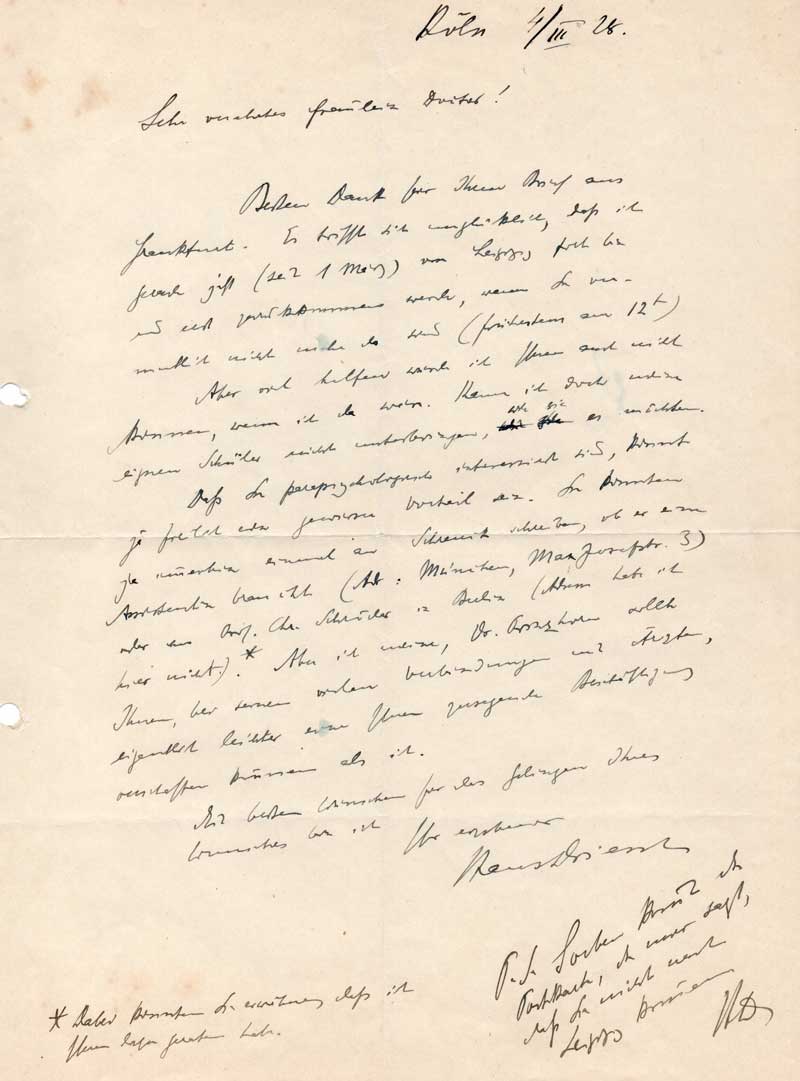 Köln 4/III 28.
Sehr verehrtes Fräulein Doktor!
Besten Dank für Ihren Brief aus
Frankfurt. Es trifft sich unglücklich, daß ich
gerade jetzt (seit 1 März) von Leipzig fort bin
und erst zurückkommen werde, wenn Sie ver-
mutlich nicht mehr da sind (frühestens am 12t)
Aber viel helfen würde ich Ihnen auch nicht
können, wenn ich da wäre. Kann ich doch meine
eigenen Schüler nicht unterbringen, wie sie es möchten.
Daß Sie parapsychologisch interessiert sind, könnte
ja freilich ein gewisser Vorteil sein. Sie könnten
ja immerhin einmal an Schrenck schreiben, ob er eine
Assistentin braucht (Adr: München, Max Josefstr. 3)
oder an Prof. Chr. Schröder in Berlin (Adresse habe ich
hier nicht).* Aber ich meine, Dr. sollte
Ihnen, bei seinen vielen Verbindungen mit Ärzten,
eigentlich leichter eine Ihnen zusagende Beschäftigung
verschaffen können als ich.
Mit besten Wünschen für das Gelingen Ihres
Wunsches bin ich Ihr ergebener
Hans Driesch
* Dabei könnten Sie erwähnen, daß ich
Ihnen dazu geraten habe.
P.S. Soeben kommt die
Postkarte, die mir sagt,
daß Sie nicht nach
Leipzig kommen
HD